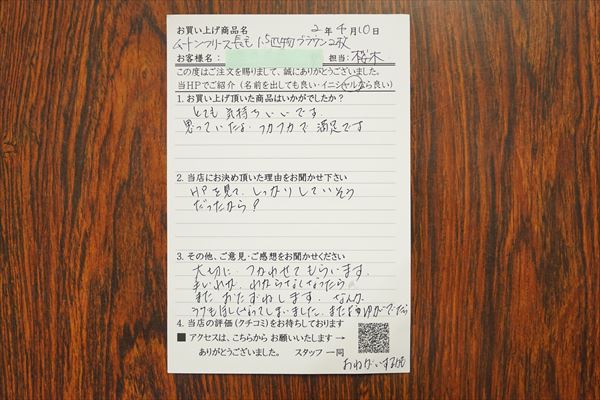 お買い上げ商品名 2年4月10日
ムートンフリース長毛 1.5匹物ブラウン2枚
お客様名 担当:桜木
この度はご注文を賜りまして、誠にありがとうございました。
当HPでご紹介(名前を出しても良い・イニシャルなら良い)
1. お買い上げ頂いた商品はいかがでしたか?
とても気持ちいいです。
思っていたよりフカフカで満足です
2. 当店にお決め頂いた理由をお聞かせ下さい
HPを見て、しっかりしていそう
だったから?
3. その他、ご意見・ご感想をお聞かせください
大切に つかわせてもらいます。
手入れが わからなくなったら
また おたずねします。 なんか
ラグもほしくなってしまいました。また
4. 当店の評価(クチコミ)をお待ちしております
■ アクセスは、こちらから お願いいたします →
ありがとうございました。 スタッフ 一同
おねがいするかも